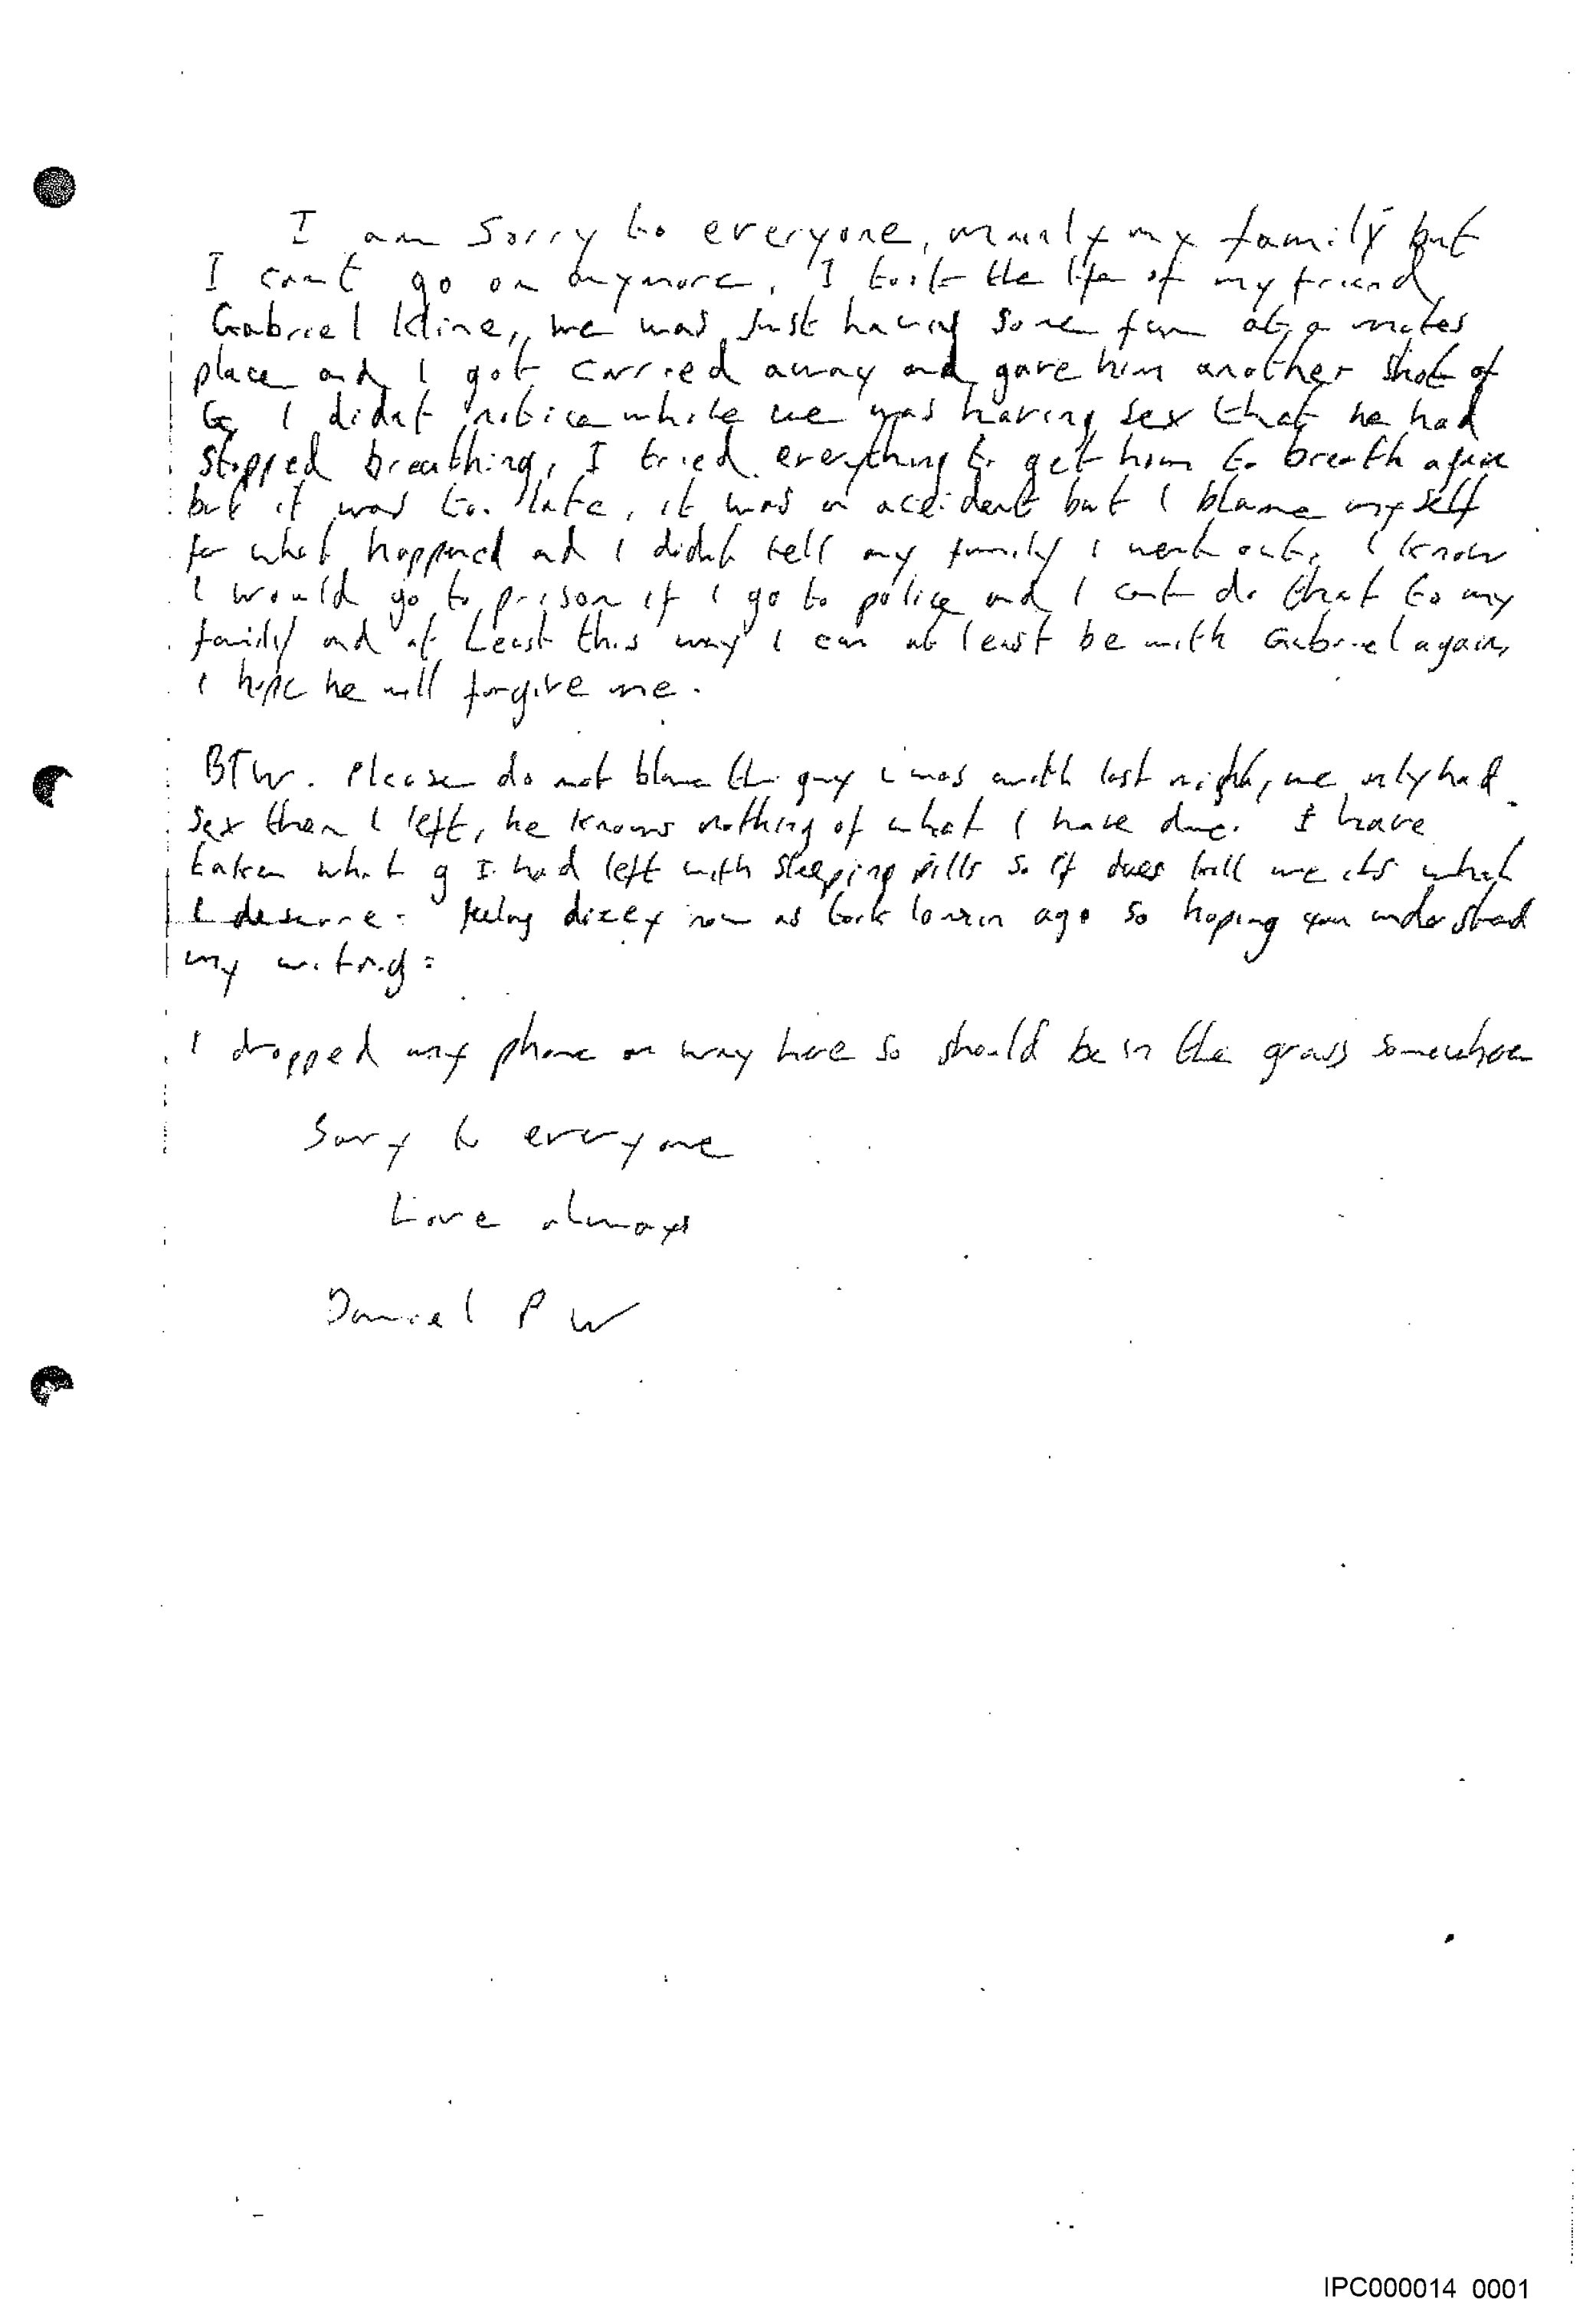 I am sorry to everyone, mainly my family but
I cant go on anymore, I took the life of my friend
Gabriel Kline, we was just having some fun at a mates
place and I got carried away and gave him another shot of
G, I didnt notice while we was having sex that he had
stopped breathing, I tried everything to get him to breath again
but it was to late, it was an accident but I blame myself
for what happened and I didnt tell my family I went out, I know
I would go to prison if I go to police and I cant do that to my
family and at least this way I can at least be with Gabriel again,
I hope he will forgive me.
BTW. Please do not blame the guy I was with last night, we only had
sex then I left, he knows nothing of what I have done. I have
taken what g I had left with sleeping pills so if it does kill me its what
I deserve. Feeling dizey now as took 10 min ago so hoping you understand
my writing.
I dropped my phone on way here so should be in the grass somewhere
Sorry to everyone
Love always
Daniel P W
IPC000014 0001